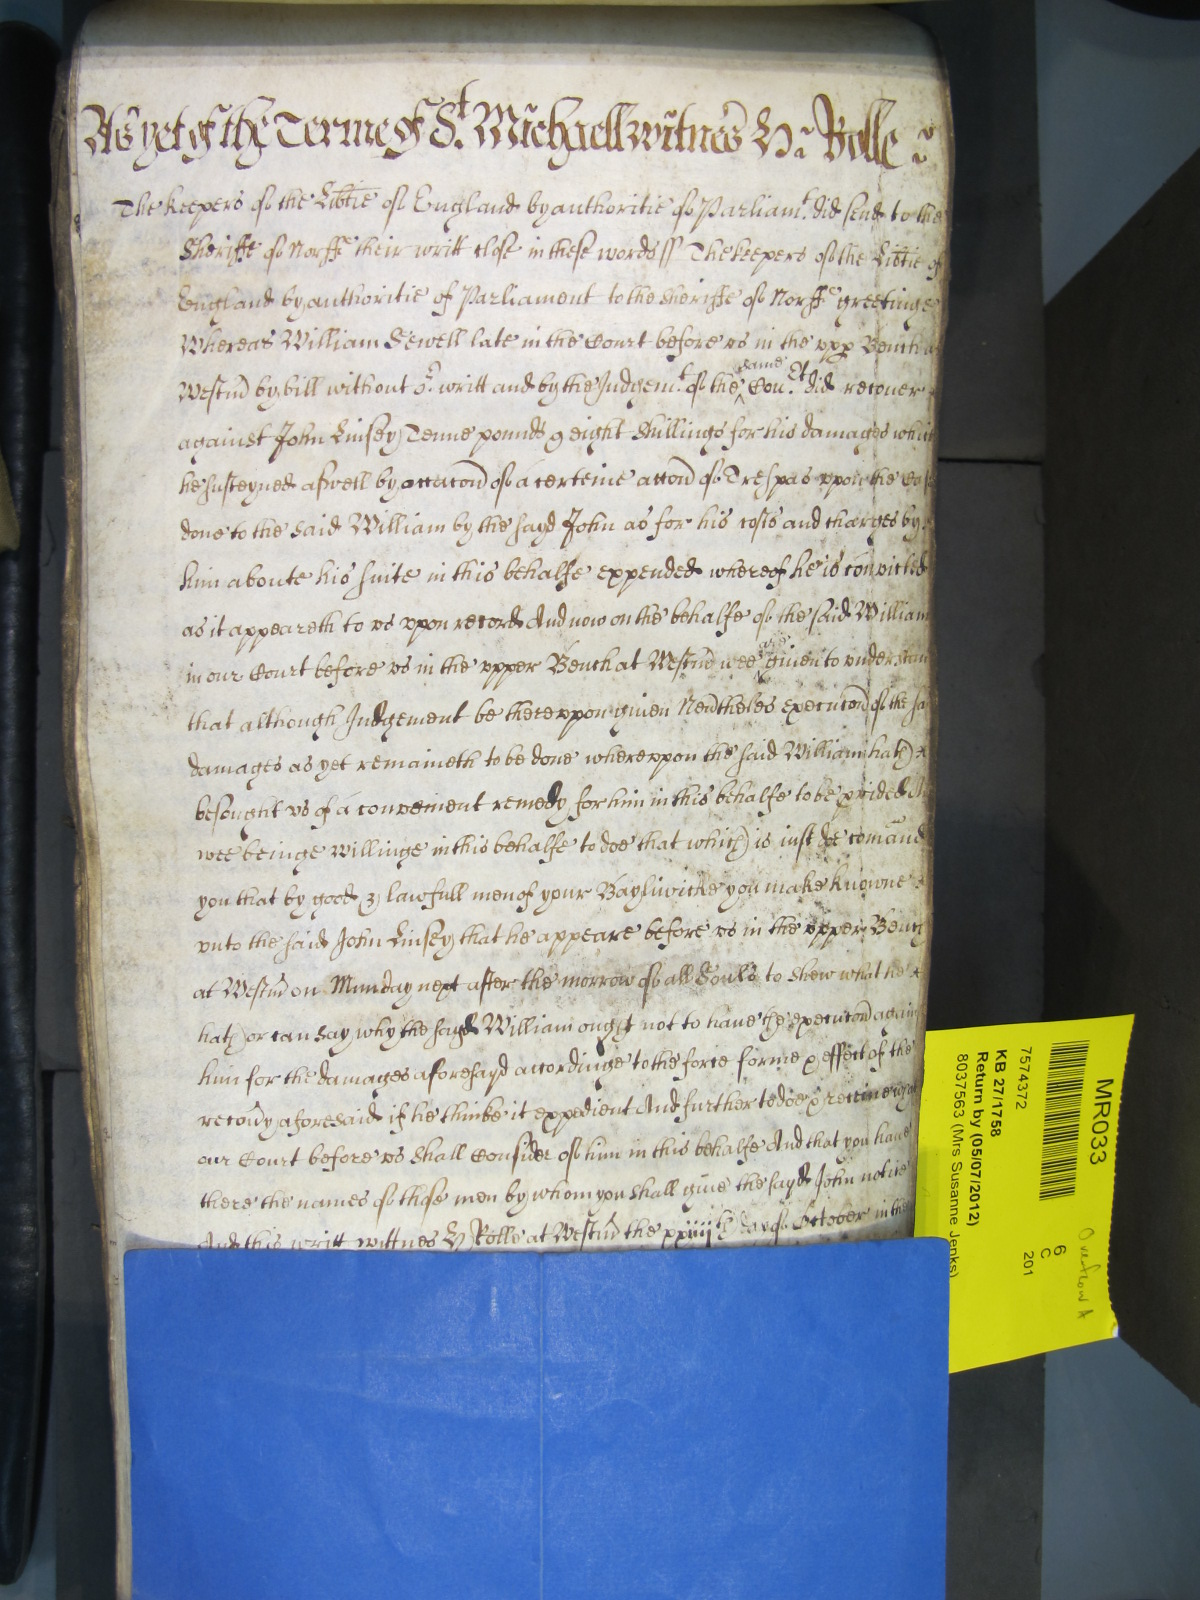 As yet of the Terme of St. Michaell witnes H: Rolle
The keepers of the Libtie of England by authoritie of Parliamt. did send to the
Sheriffe of Norffe their writt close in these words ss The keepers of the Libtie of
England by authoritie of Parliament to the Sheriffe of Norffe greetinge
Whereas William Sewell late in the Court before vs in the vpp Bench at
Westm by bill without or writt and by the Judgemt. of the same Court did recouer
against John Linsey Tenne pounds & eight Shillings for his damages which
he susteyned aswell by occacon of a certeine accon of Trespas vpon the Case
done to the said William by the sayd John as for his costs and charges by
him aboute his suite in this behalfe expended whereof he is convicted
as it appeareth to vs vpon record And now on the behalfe of the said William
in our Court before vs in the vpper Bench at Westm wee are giuen to vnderstand
that although Judgement be therevpon giuen Neutheles execucon of the sa
damages as yet remaineth to be done wherevpon the said William hath
besought vs of a convenient remedy for him in this behalfe to be prided And
wee beinge willinge in this behalfe to doe that which is iust doe comand
you that by good & lawfull men of your Bayliwicke you make knowne
vnto the said John Linsey that he appeare before vs in the vpper Bench
at Westm on Munday next after the morrow of all Souls to shew what he
hath or can say why the sayd William ought not to haue the execucon against
him for the damages aforesayd accordinge to the force forme & effect of the
recouy aforesaid if he thinke it expedient And further to doe & receiue what
our Court before vs shall Consider of him in this behalfe And that you haue
there the names of those men by whom you shall giue the sayd John notice
And this writt wittnes H Rolle at Westm the xxiiijth day of October in the
MR033
7574372
KB 27/1758
Return by (05/07/2012)
8037563 (Mrs Susanne Jenks)
6
C
201
Overflow A